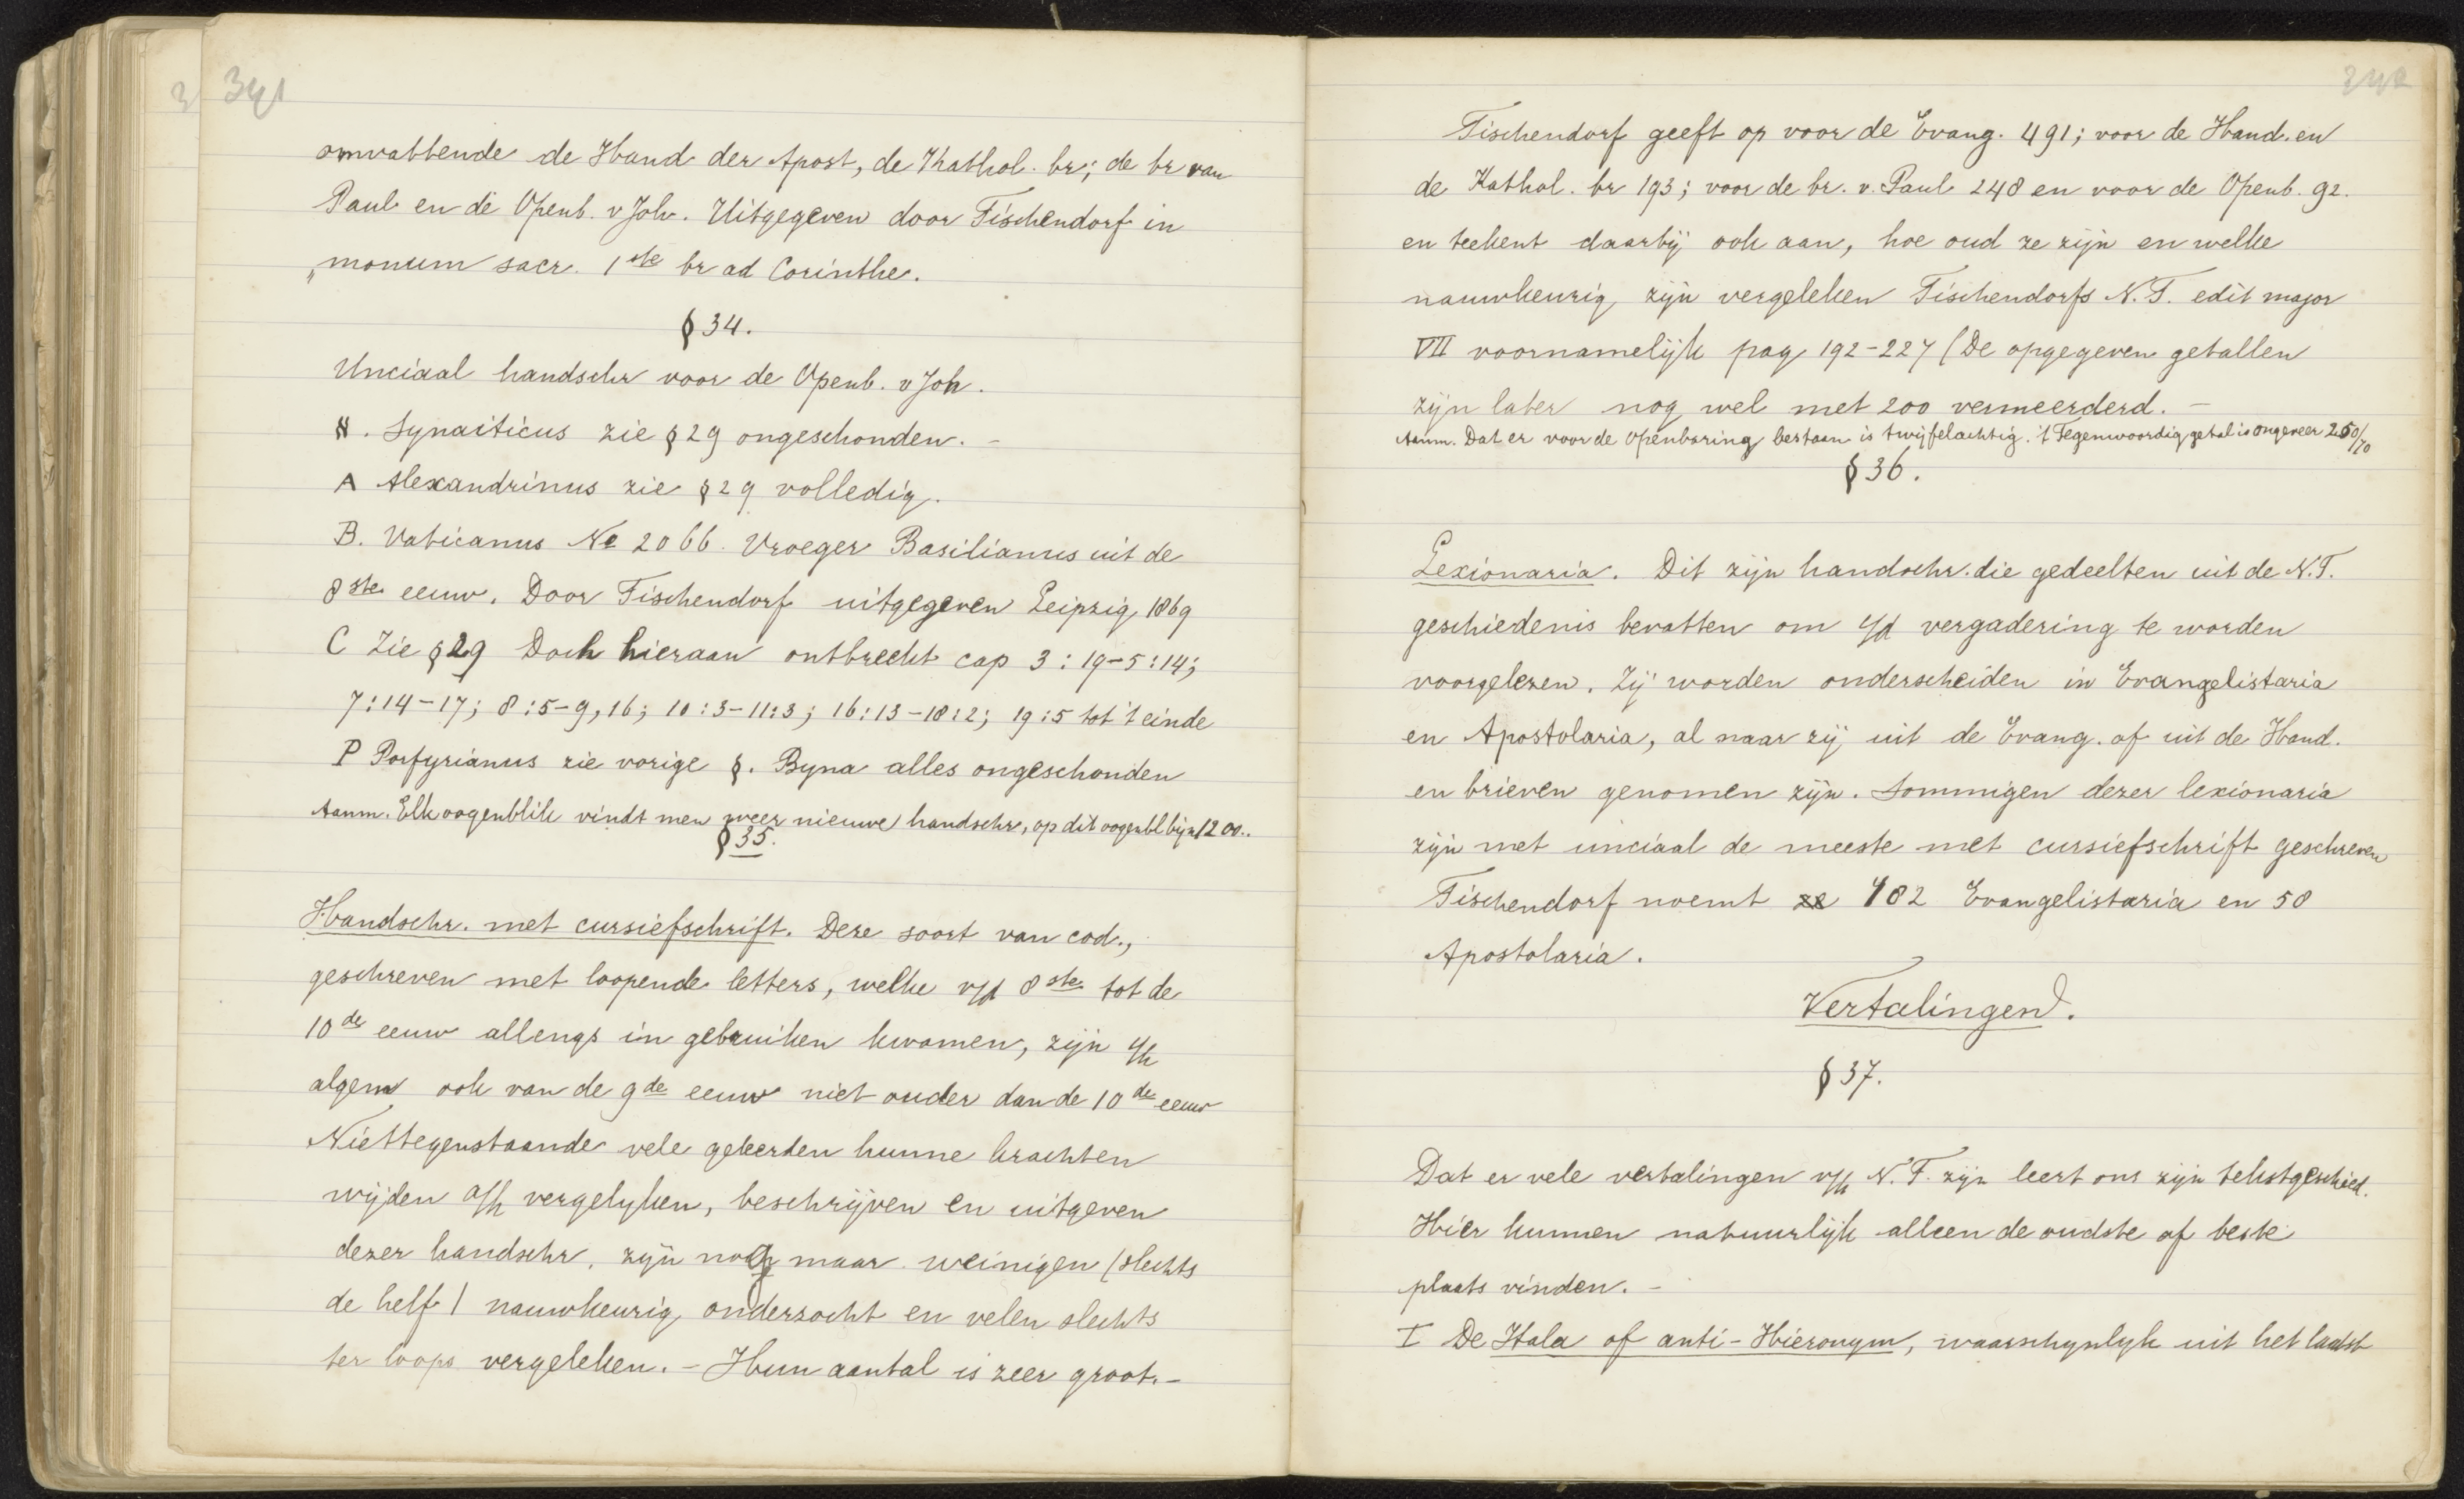 341
omvattende de Hand der Apost, de Kathol. br; de br van
Paul en de Openb. v Joh. Uitgegeven door Tischendorf in
„monum sacr. 1ste br ad Corinthe.
§ 34.
Unciaal handschr voor de Openb. v Joh.
א. Synaiticus zie § 29 ongeschonden. -
A Alexandrinus zie § 29 volledig.
B. Vaticanus No 2066. Vroeger Basilianus uit de
8ste eeuw. Door Tischendorf uitgegeven Leipzig 1869
C Zie § 29 Doch hieraan ontbreekt cap 3:19-5:14;
7:14-17; 8:5-9,16; 10:3-11:3; 16:13-18:2; 19:5 tot 't einde
P Porfyrianus zie vorige §. Byna alles ongeschonden
Aanm. Elk oogenblik vindt men weer nieuwe handschr, op dit oogenbl bijn 1200..
§ 35.
Handschr. met cursiefschrift. Deze soort van cod.,
geschreven met loopende letters, welke v/d 8ste tot de
10de eeuw allengs in gebruiken kwamen, zijn i/h
algem ook van de 9de eeuw niet ouder dan de 10de eeuw
Niettegenstaande vele geleerden hunne krachten
wijden a/h vergelyken, beschrijven en uitgeven
dezer handschr. zijn nog maar weinigen (slechts
de helf) nauwkeurig onderzocht en velen slechts
ter loops vergeleken. - Hun aantal is zeer groot. -
342
Tischendorf geeft op voor de Evang. 491; voor de Hand. en
de Kathol. br 193; voor de br. v. Paul 248 en voor de Openb. 92.
en teekent daarbij ook aan, hoe oud ze zijn en welke
nauwkeurig zijn vergeleken Tischendorfs N.T. edit major
VII voornamelijk pag 192-227 (De opgegeven getallen
zijn later nog wel met 200 vermeerderd. -
Aanm. Dat er voor de Openbaring bestaan is twijfelachtig. 't Tegenwoordig getal is ongeveer 250/70
§ 36.
Lexionaria. Dit zijn handschr. die gedeelten uit de N.T.
geschiedenis bevatten om i/d vergadering te worden
voorgelezen. Zij worden onderscheiden in Evangelistaria
en Apostolaria, al naar zij uit de Evang. of uit de Hand.
en brieven genomen zijn. Sommigen dezer lexionaria
zijn met unciaal de meeste met cursiefschrift geschreven
Tischendorf noemt ze 182 Evangelistaria en 58
Apostolaria.
Vertalingen.
§ 37.
Dat er vele vertalingen v/h N.T. zijn leert ons zijn tekstgeschied.
Hier kunnen natuurlijk alleen de oudste of beste
plaats vinden. -
I De Itala of anti-Hieronym, waarschynlyk uit het laatst